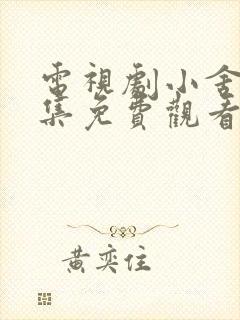 電視劇小舍
集免費觀看
黃奕住